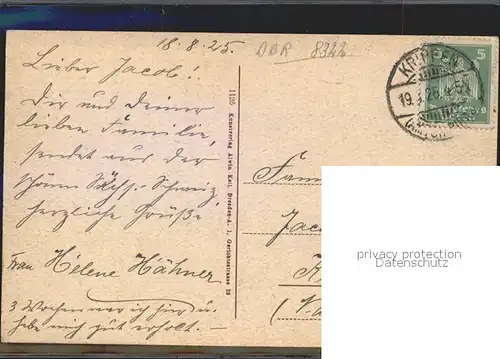 18.8.25.
DDR 8322
Lieber Jacob!
Dir und Deiner
lieben Familie,
sendet aus der
schönen Sächs. Schweiz,
herzliche Grüße
Frau Helene Hähner
3 Wochen war ich hier u.
habe mich gut erholt. —
1125 Kunstverlag Alwin Keil, Dresden-A. 1, Gerichtsstrasse
KRIPPEN
19.8.25
5
Fam
Jac
privacy protection
Datenschutz